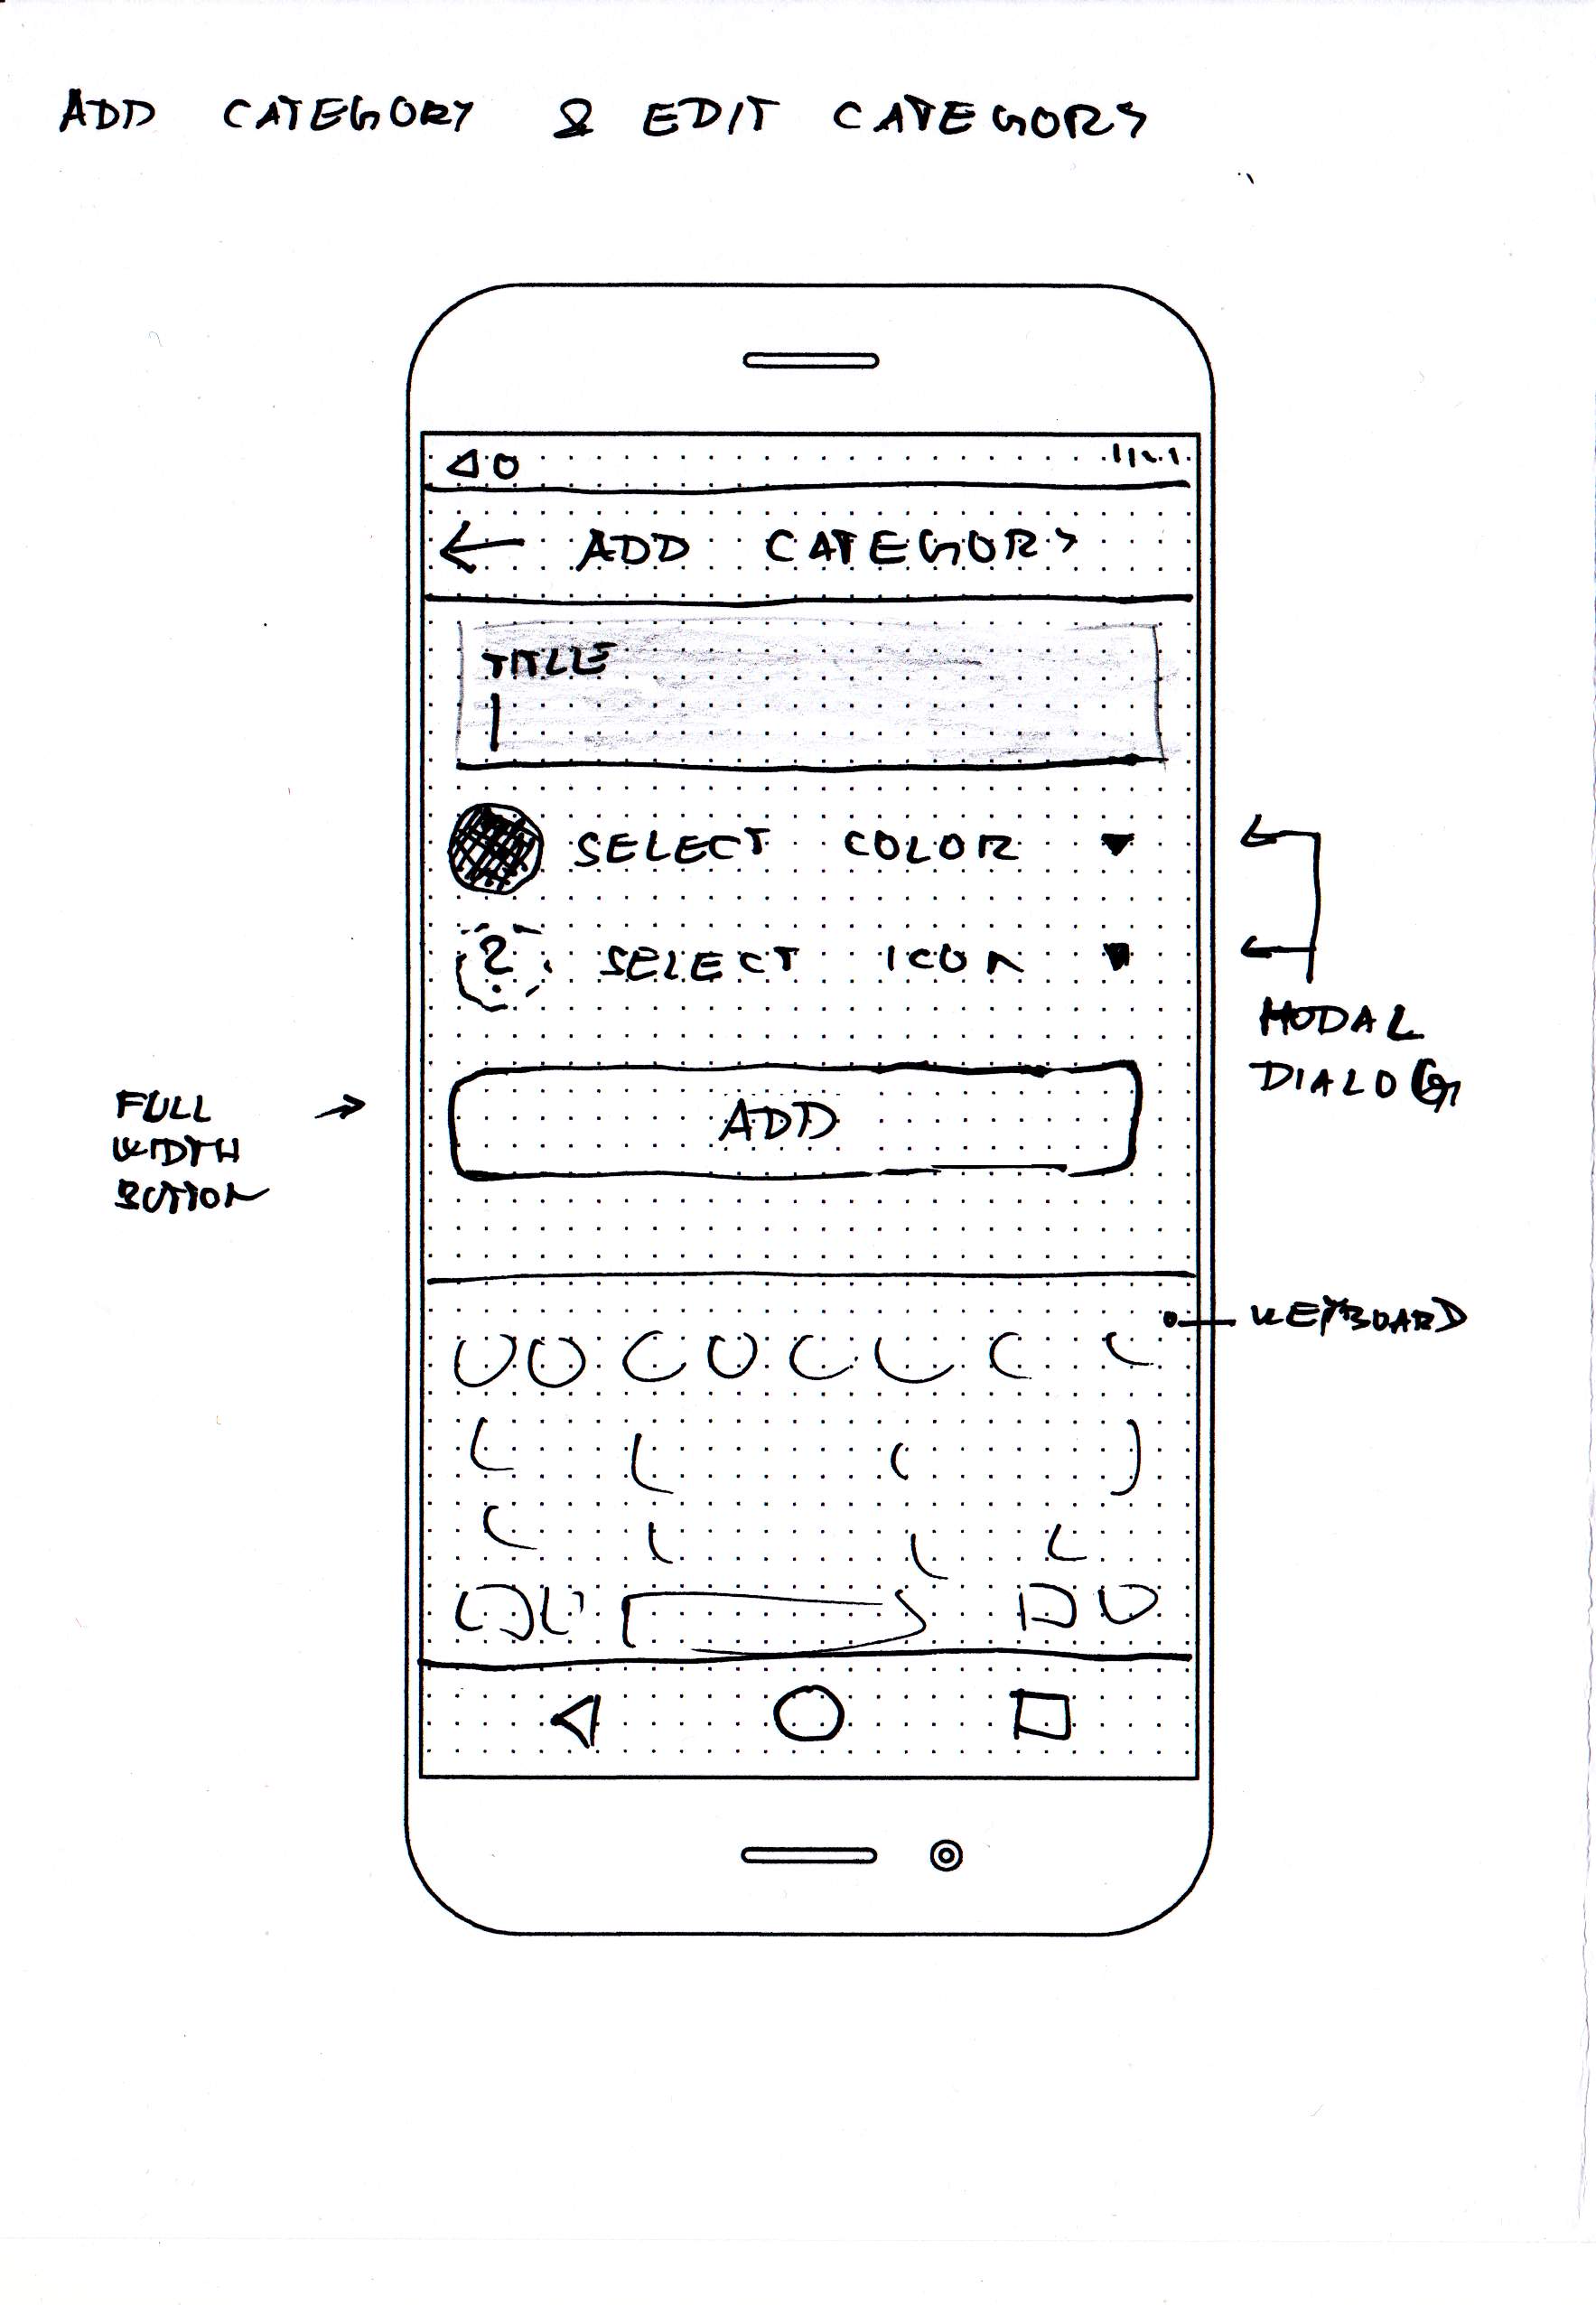 ADD CATEGORY & EDIT CATEGORY
ADD CATEGORY
TITLE
SELECT COLOR
?
SELECT ICON
MODAL
DIALOG
FULL
WIDTH
BUTTON
ADD
KEYBOARD